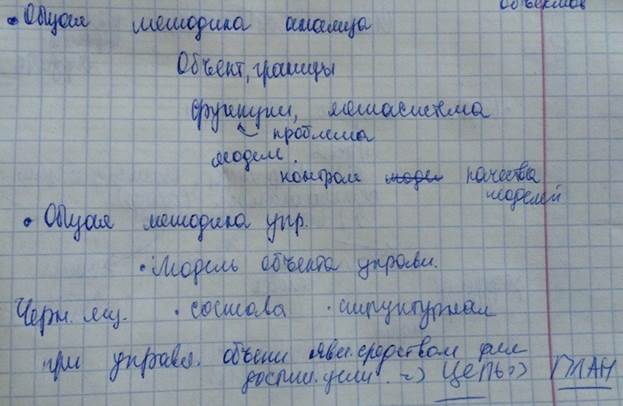 объектов
• Общая методика анализа
Объект, границы
функции, метасистема
проблема
модели.
контроль модел качества
моделей
• Общая методика упр.
• Модель объекта управл.
Черн. ящ. • состава • структурная
при управл. объект явл. средством для
достиж. цели. => Цель => ПЛАН